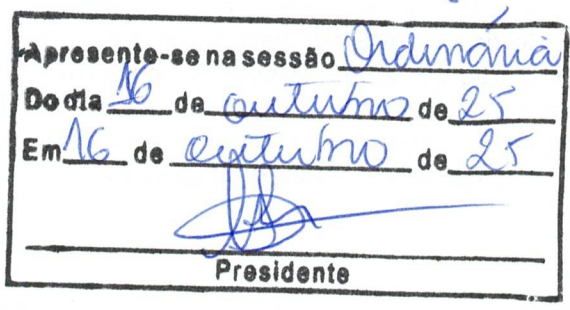 Apresente-se na sessão Ordinária
Do dia 16 de outubro de 25
Em 16 de outubro de 25
Presidente